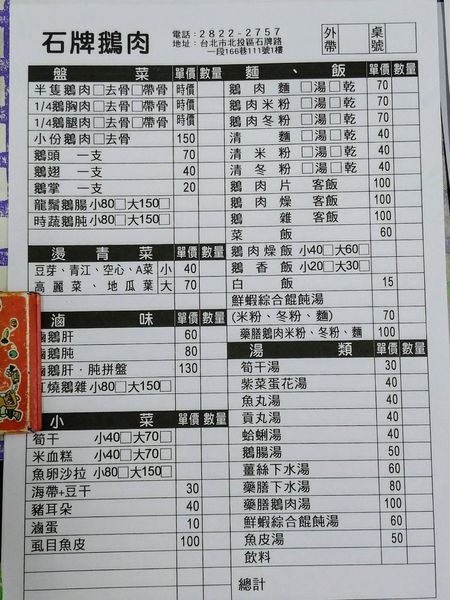 石牌鵝肉
電話：2822-2757
地址：台北市北投區石牌路
一段166巷111號1樓
外帶
桌號
盤 菜 單價 數量
半隻鵝肉□去骨□帶骨 時價
1/4鵝胸肉□去骨□帶骨 時價
1/4鵝腿肉□去骨□帶骨 時價
小份鵝肉□去骨 150
鵝頭 一支 70
鵝翅 一支 40
鵝掌 一支 20
龍鬚鵝腸 小80□大150□
時蔬鵝肫 小80□大150□
燙青菜 單價 數量
豆芽、青江、空心、A菜 小 40
高麗菜、地瓜葉 大 70
滷 味 單價 數量
滷鵝肝 60
滷鵝肫 80
滷鵝肝．肫拼盤 130
紅燒鵝雜 小80□大150□
小 菜 單價 數量
筍干 小40□大70□
米血糕 小40□大70□
魚卵沙拉 小80□大150□
海帶+豆干 30
豬耳朵 40
滷蛋 10
虱目魚皮 100
麵、飯 單價 數量
鵝肉麵□湯□乾 70
鵝肉米粉□湯□乾 70
鵝肉冬粉□湯□乾 70
清麵□湯□乾 40
清米粉□湯□乾 40
清冬粉□湯□乾 40
鵝肉片 客飯 100
鵝肉燥 客飯 100
鵝雜 客飯 100
菜飯 60
鵝肉燥飯 小40□大60□
鵝香飯 小20□大30□
白飯 15
鮮蝦綜合餛飩湯
(米粉、冬粉、麵) 70
藥膳鵝肉米粉、冬粉、麵 100
湯 類 單價 數量
筍干湯 30
紫菜蛋花湯 40
魚丸湯 40
貢丸湯 40
蛤蜊湯 40
鵝腸湯 50
薑絲下水湯 60
藥膳下水湯 80
藥膳鵝肉湯 100
鮮蝦綜合餛飩湯 60
魚皮湯 50
飲料
總計